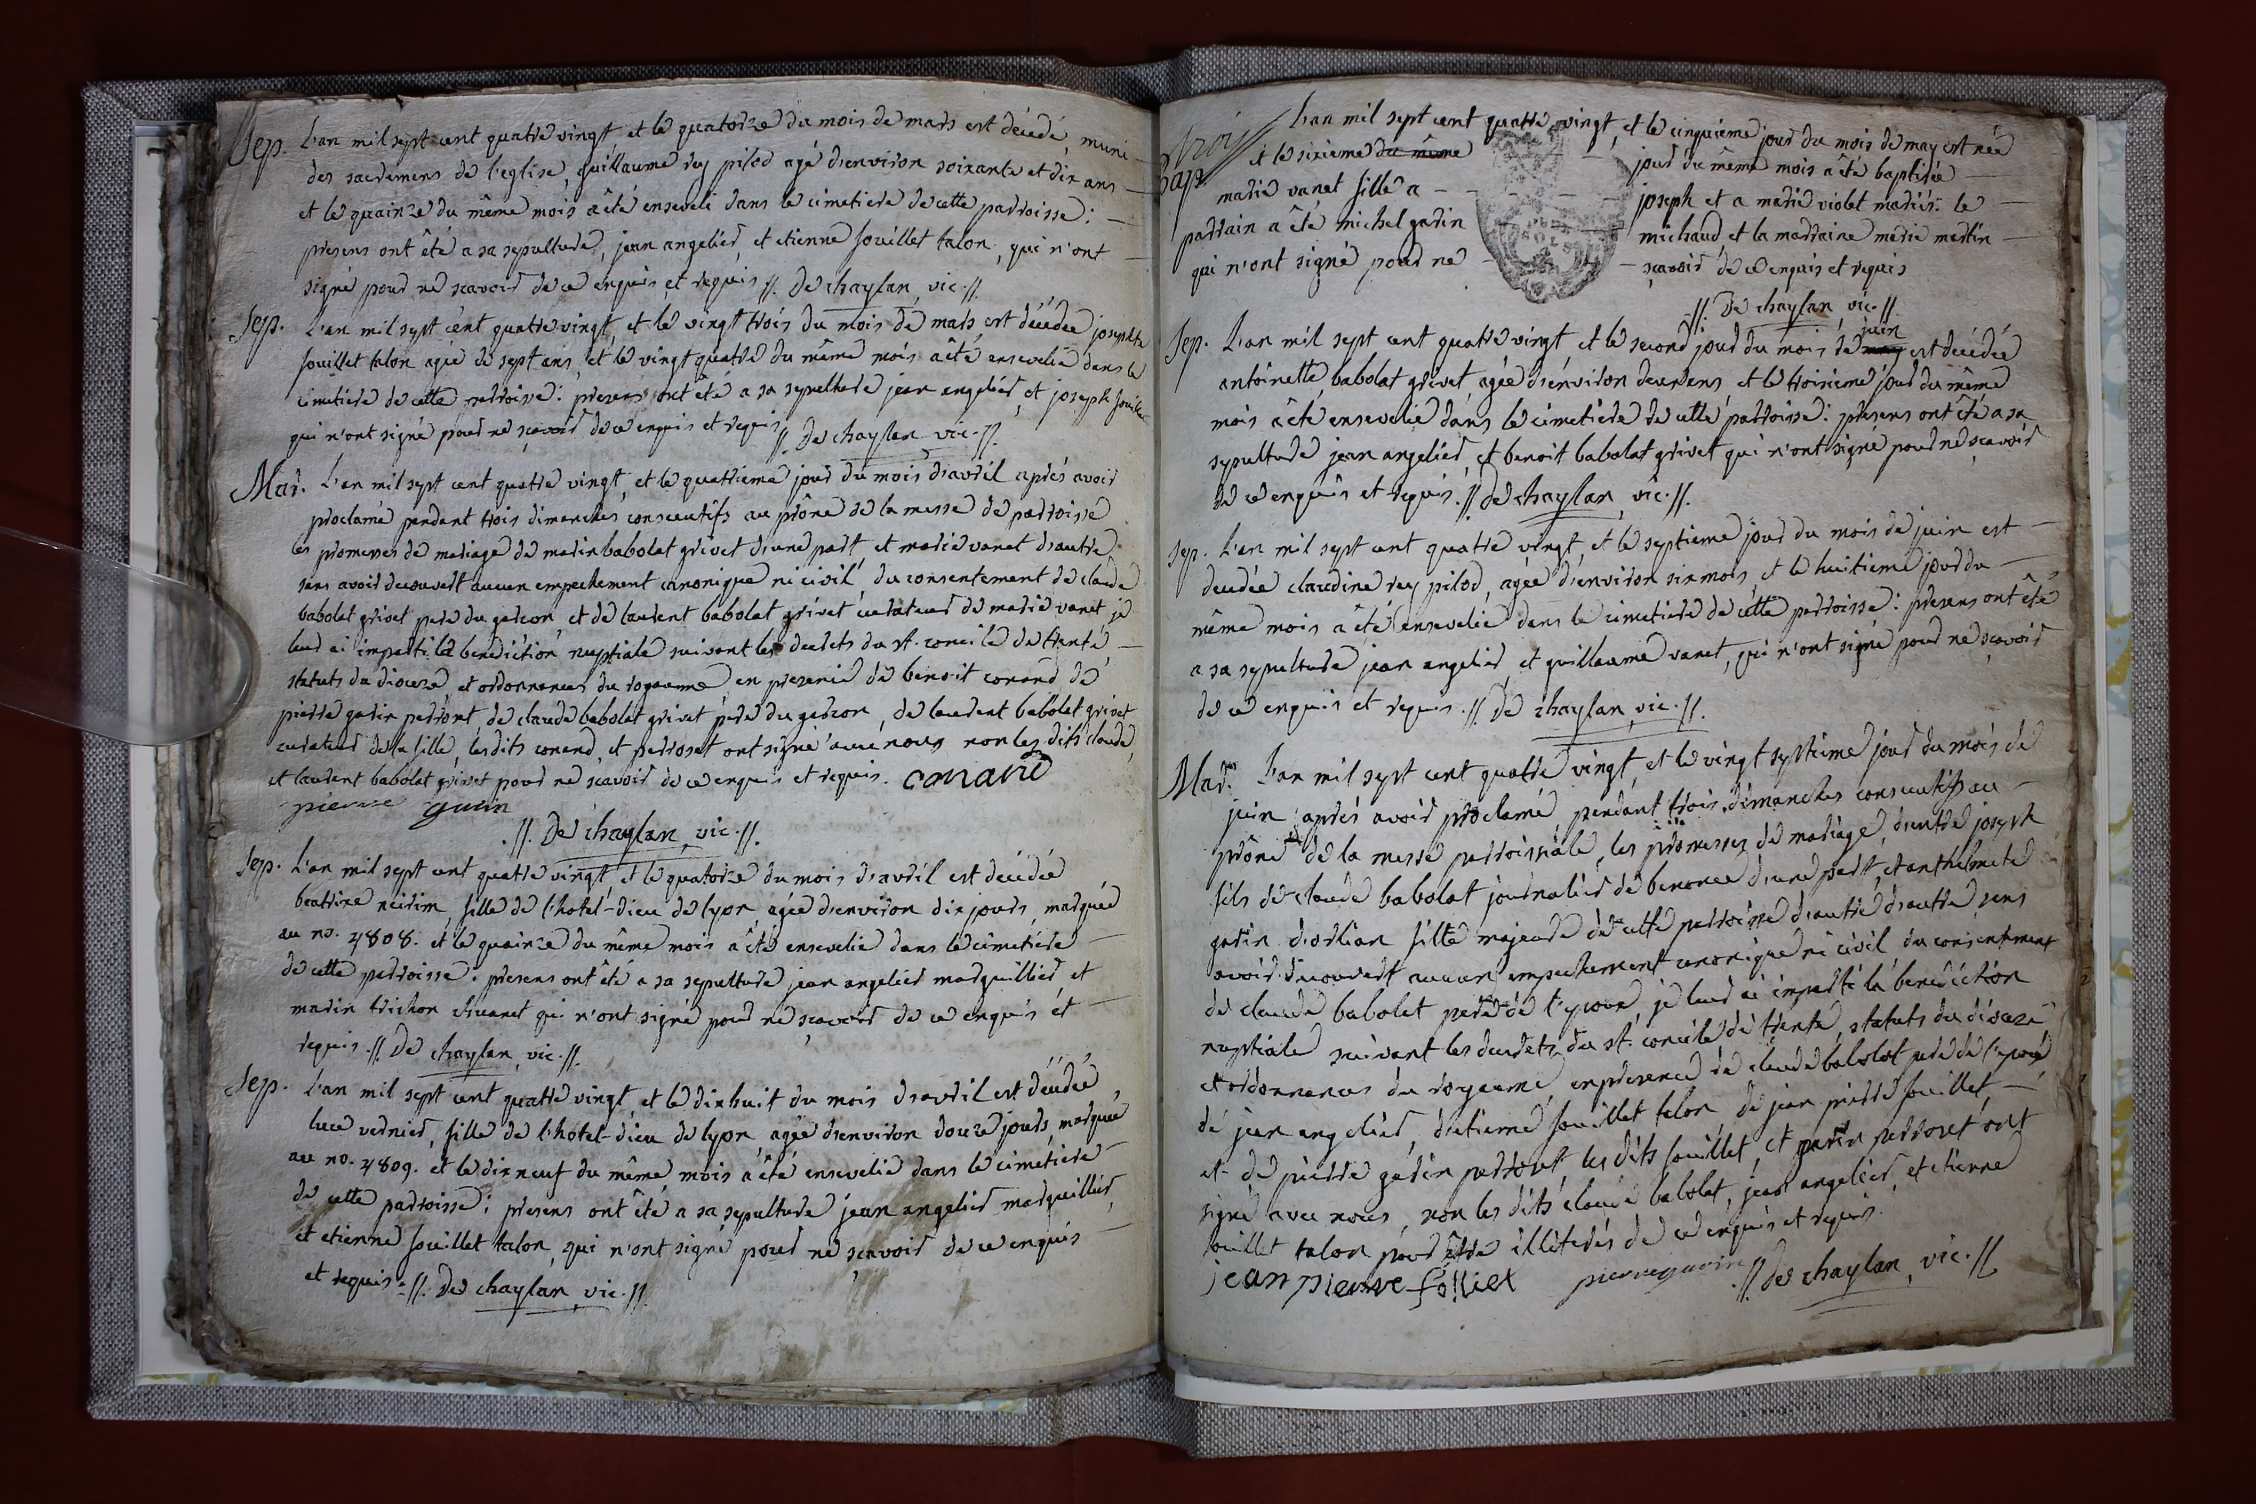 Sep. L'an mil sept cent quatre vingt, et le quatorze du mois de mars est décédé, muni
des sacremens de l'eglise, guillaume rey pilod agé d'environ soixante et dix ans —
et le quainze du même mois a été enseveli dans le cimetiere de cette parroisse : —
presens ont été a sa sepulture, jean angelier, et etienne fouillet talon, qui n'ont —
signé pour ne scavoir de ce enquis et requis //. De chaylan, vic. //.
Sep. L'an mil sept cent quatre vingt, et le vingt trois du mois de mars est décédée josephte
fouillet talon agée de sept ans, et le vingt quatre du même mois a été ensevelie dans le
cimetiere de cette parroisse : presens ont été a sa sepulture jean angelier, et joseph
qui n'ont signé pour ne scavoir de ce enquis et requis //. De chaylan vic. //.
Mar. L'an mil sept cent quatre vingt, et le quatrieme jour du mois d'avril aprés avoir
proclamé pendant trois dimanches consecutifs au prône de la messe de parroisse
les promesses de mariage de marin babolat grivet d'une part et marie vanet d'autre
sans avoir decouvert aucun empechement canonique ni civil du consentement de claude
babolat grivet pere du garcon, et de laurent babolat grivet curateur de marie vanet, je
leur ai imparti la benediction nuptiale suivant les decrets du st. concile de trente, —
statuts du diocese, et ordonnances du royaume, en presence de benoit conand de
pierre garin perront de claude babolat grivet pere du garcon, de laurent babolat grivet
curateur de la fille, les dits conand, et perroset ont signé avec nous non les dits claude,
et laurent babolat grivet pour ne scavoir de ce enquis et requis. conand
pierre garin
//. De chaylan, vic. //.
Sep. L'an mil sept cent quatre vingt, et le quatorze du mois d'avril est décédée
beatrixe, fille de l'hotel-dieu de lyon, agée d'environ dix jours, marquée
au no. 4808. et le quainze du même mois a été ensevelie dans le cimetiere —
de cette parroisse : presens ont été a sa sepulture jean angelier marguillier, et
marin trichon chvanet qui n'ont signé pour ne scavoir de ce enquis et —
requis. //. De chaylan, vic. //.
Sep. L'an mil sept cent quatre vingt, et le dixhuit du mois d'avril est décédée
luce vernier, fille de l'hotel-dieu de lyon, agée d'environ douze jours, marquée
au no. 4809. et le dixneuf du même mois a été ensevelie dans le cimetiere —
de cette parroisse : presens ont été a sa sepulture jean angelier marguillier,
et etienne fouillet talon, qui n'ont signé pour ne scavoir de ce enquis —
et requis. //. De chaylan, vic. //.
trois
Bap. L'an mil sept cent quatre vingt, et le cinquieme jour du mois de may est née
et le sixieme du même jour du même mois a été baptisée —
marie vanet fille a — joseph et a marie violet mariés : le —
parrain a été michel garin — michaud et la marraine marie martin —
qui n'ont signé pour ne — scavoir de ce enquis et requis
//. De chaylan, vic. //.
juin
Sep. L'an mil sept cent quatre vingt et le second jour du mois de may est décédée
antoinette babolat grivet, agée d'environ deux ans et le troisieme jour du même
mois a été ensevelie dans le cimetiere de cette parroisse : presens ont été a sa
sepulture jean angelier, et benoit babolat grivet qui n'ont signé pour ne scavoir
de ce enquis et requis. //. De chaylan, vic. //.
Sep. L'an mil sept cent quatre vingt, et le septieme jour du mois de juin est —
decedée claudine rey pilod, agée d'environ six mois, et le huitieme jour du —
même mois a été ensevelie dans le cimetiere de cette parroisse : presens ont été
a sa sepulture jean angelier, et guillaume vanet, qui n'ont signé pour ne scavoir
de ce enquis et requis. //. De chaylan, vic. //.
Mar. L'an mil sept cent quatre vingt, et le vingt septieme jour du mois de
juin, aprés avoir proclamé, pendant trois dimanches consecutifs au —
prône de la messe parroissiale, les promesses de mariage, d'entre joseph
fils de claude babolat journalier de benonce d'une part, et anthelmete
garin fille majeure de cette parroisse d'autre d'autre sans
avoir decouvert aucun empechement canonique ni civil du consentement
de claude babolat pere de l'epoux, je leur ai imparti la benediction
nuptiale suivant les decrets du st. concile de trente, statuts du diocese
et ordonnances du royaume, en presence de claude babolat pere de l'epoux,
de jean angelier, d'etienne fouillet talon, de jean pierre fouillet, —
et de pierre garin perront, les dits fouillet, et garin perroset ont
signé avec nous, non les dits claude babolat, jean angelier, et etienne
fouillet talon pour être illiterés de ce enquis et requis.
jean pierre folliet pierre garin //. De chaylan, vic. //.